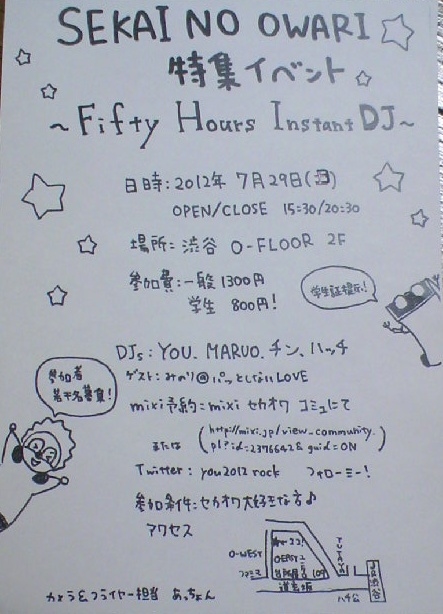 SEKAI NO OWARI
特集イベント
~Fifty Hours Instant DJ~
日時:2012年 7月29日(日)
OPEN/CLOSE 15:30/20:30
場所:渋谷 O-FLOOR 2F
参加費:一般 1300円
学生 800円!
学生証提示!
DJs:YOU. MARUO. チン、ハッチ
ゲスト:みのり@パッとしないLOVE
参加者
若干名募集!
mixi予約=mixi セカオワ コミュにて
または
(http://mixi.jp/view_community.
pl?id=2376642&guid=ON)
Twitter: you2012rock フォローミー!
参加条件:セカオワ大好きな方♪
アクセス
O-WEST
O-EAST
TUTAYA
ファミマ
109
道玄坂
ハチ公
JR渋谷
カメラ&フライヤー担当 あっちょん